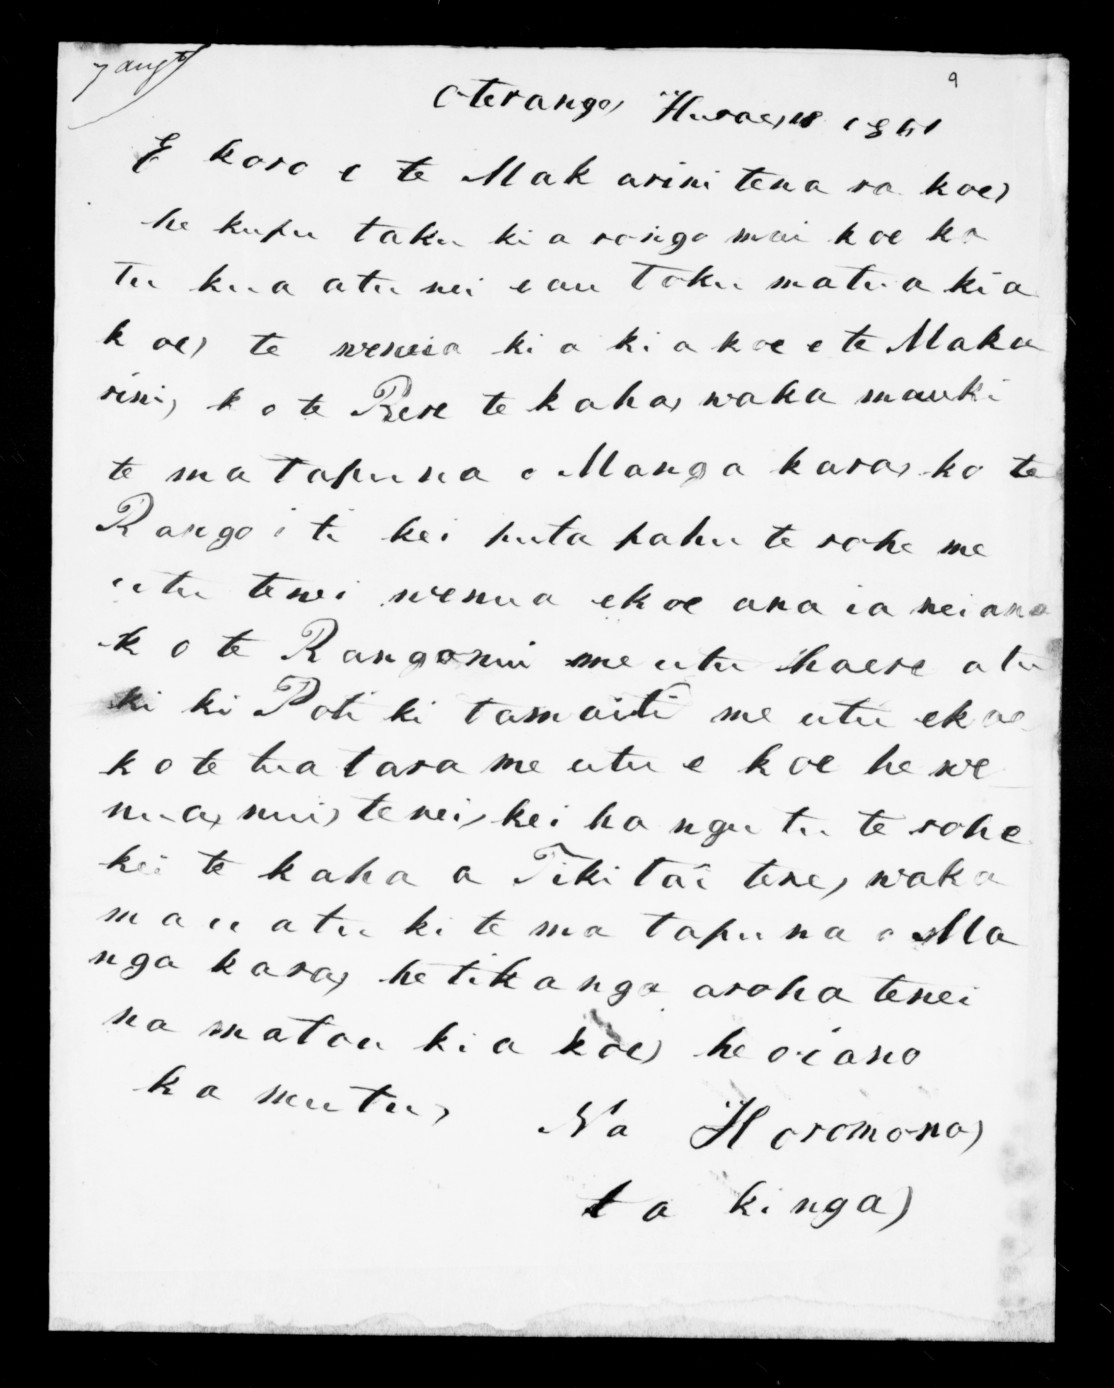 7 augt
9
Oteranga, Hurae, 18 1851
E koro e te Mak arini tena ra koe,
he kupu taku ki a rongo mai koe ko
tu ku a atu nei e au toku matua ki a
k oe, te wenua ki a ki a koe e te Maka
rini, k o te Rere te kaha, waka mau ki
te ma tapu na o Manga kara, ko te
Rango i ti kei puta pahu te rohe me
utu tenei wenua e koe ana ia nei ano
k o te Rango nui me utu haere atu
ki ki Poti ki tamaiti me utu e koe
k o te tua tara me utu e koe he we
nua, nui, te nei, kei ha ngu tu te rohe
kei te kaha a Tiki tai tere, waka
m a u atu ki te ma tapu na o Ma
nga kara, he tika nga aroha tenei
na matou ki a koe, he oi ano
ka mutu,
Na Horomona,
ta ki nga,